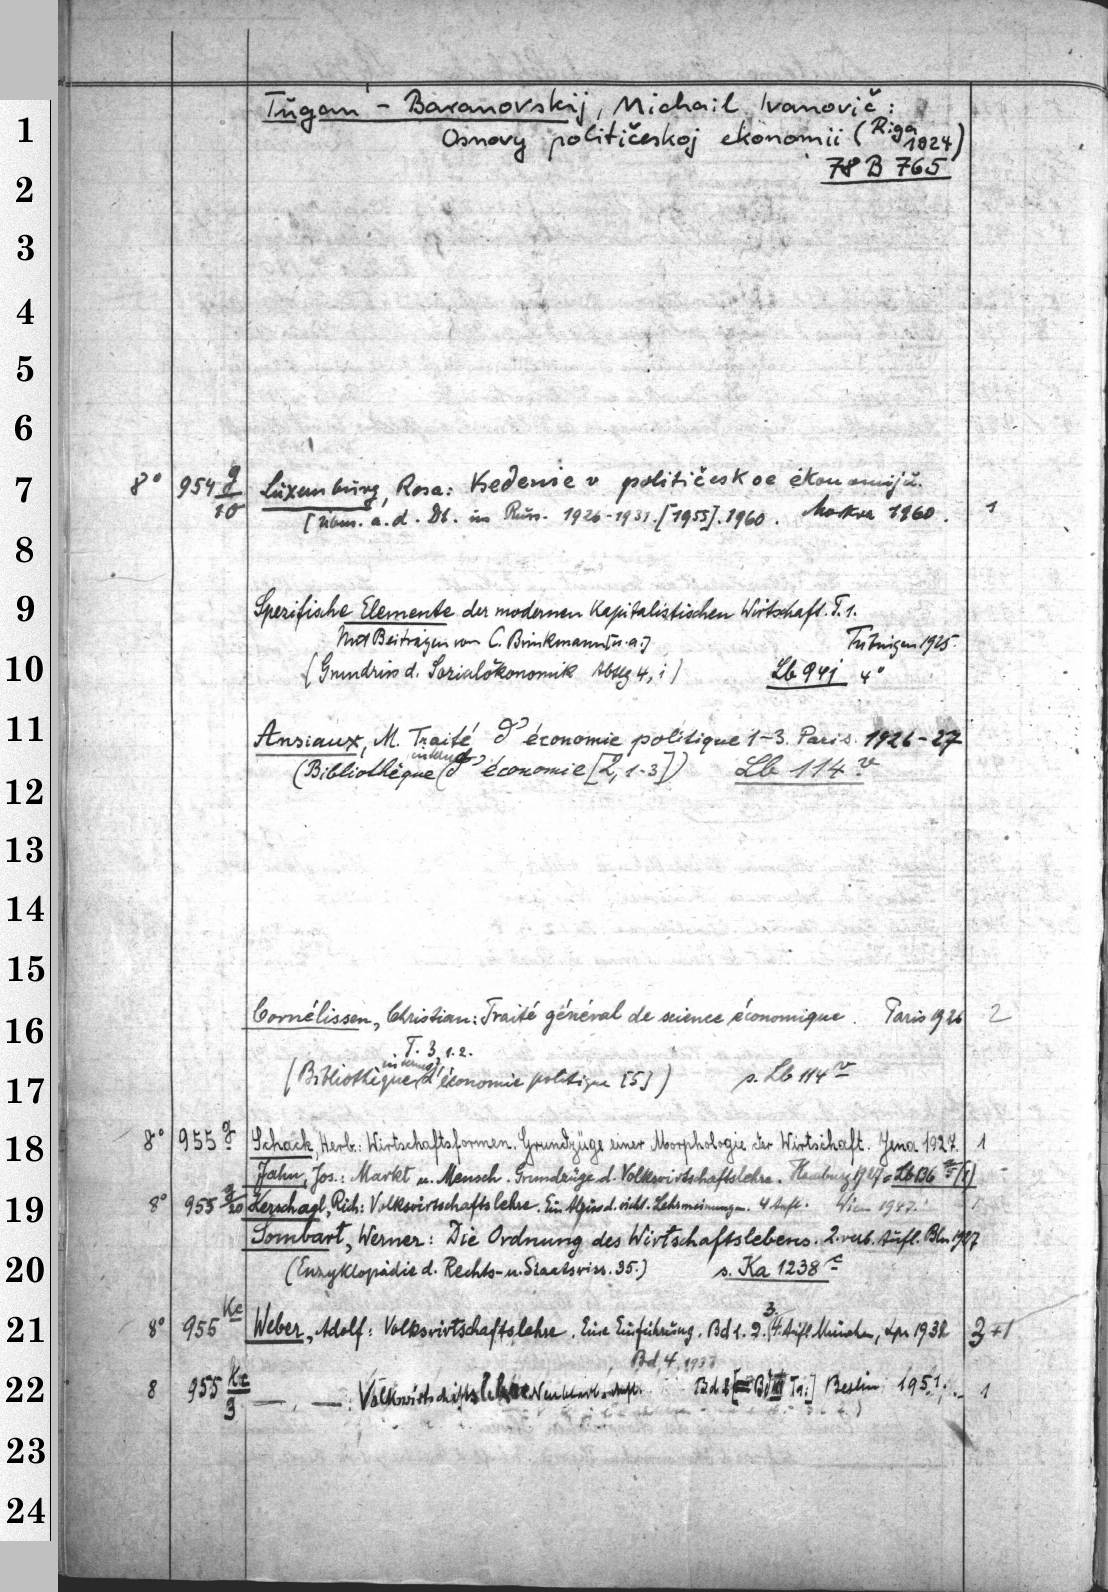 1
Tugan-Baranovskij, Michail Ivanovič:
Osnovy političeskoj ekonomii (Riga 1924)
2
78 B 765
3
4
5
6
7
8° 954 g/10 Luxemburg, Rosa: Vedenie v političeskoe ekonomijů.
[Übers. a. d. Dt. ins Russ. 1926-1931. [1955]. 1960. Moskva 1960. 1
8
9
Spezifische Elemente der modernen kapitalistischen Wirtschaft. T. 1.
Mit Beiträgen von C. Brinkmann [u. a.] Tübingen 1925.
10
(Grundriss d. Sozialökonomik Abtlg 4, i) Lb 94i 4°
11
Ansiaux, M. Traité d'économie politique 1-3. Paris. 1926-27
(Bibliothèque internat. d'économie [2, 1-3]) Lb 114 v
12
13
14
15
16
Cornélissen, Christian: Traité général de science économique. Paris 1926 2
T. 3, 1.2.
17
(Bibliothèque internat. d'économie politique [5]) s. Lb 114 v
18
8° 955 g Schack, Herb.: Wirtschaftsformen. Grundzüge einer Morphologie der Wirtschaft. Jena 1927. 1
Jahn, Jos.: Markt u. Mensch. Grundzüge d. Volkswirtschaftslehre. Hamburg 1927 = Lb 136
19
8° 955 g/20 Kerschagl, Rich: Volkswirtschaftslehre. Ein Abriss d. wicht. Lehrmeinungen. 4 Aufl. Wien 1947. 1
Sombart, Werner: Die Ordnung des Wirtschaftslebens. 2. verb. Aufl. Bln 1927
20
(Enzyklopädie d. Rechts- u. Staatswiss. 35.) s. Ka 1238
21
8° 955 Kc Weber, Adolf: Volkswirtschaftslehre. Eine Einführung. Bd 1. 2. 3. (4. Aufl. München, Lpz 1932 3+1
Bd. 4, 1933
22
8 955 Kc/3 —, —: Volkswirtschaftslehre Bd 2 Berlin 1951. 1
23
24